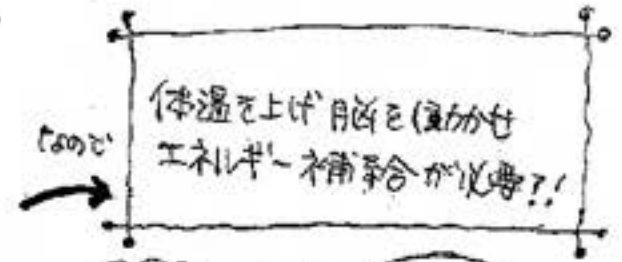 なので
体温を上げ脳を働かせ
エネルギー補給が必要?!